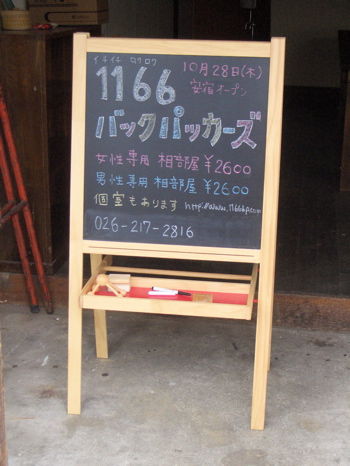 イチイチ ロクロク
1166
10月28日(木)
安宿オープン
バックパッカーズ
女性専用 相部屋 ¥2600
男性専用 相部屋 ¥2600
個室もあります http://www.1166bp.com
026-217-2816